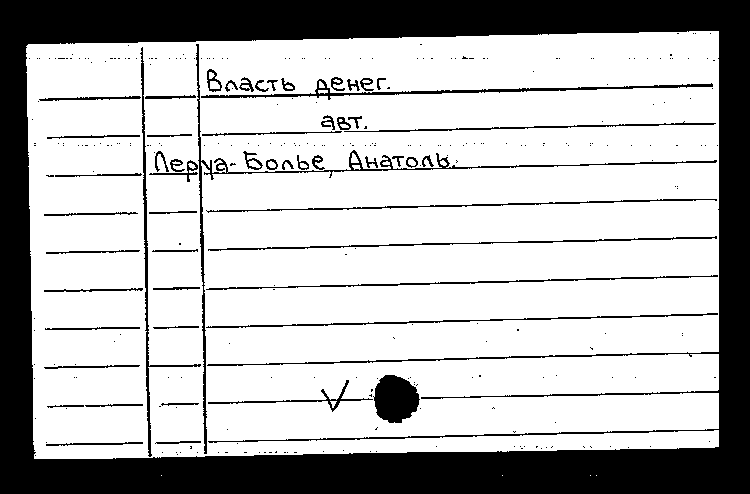 Власть денег.
авт.
Леруа-Болье, Анатоль.